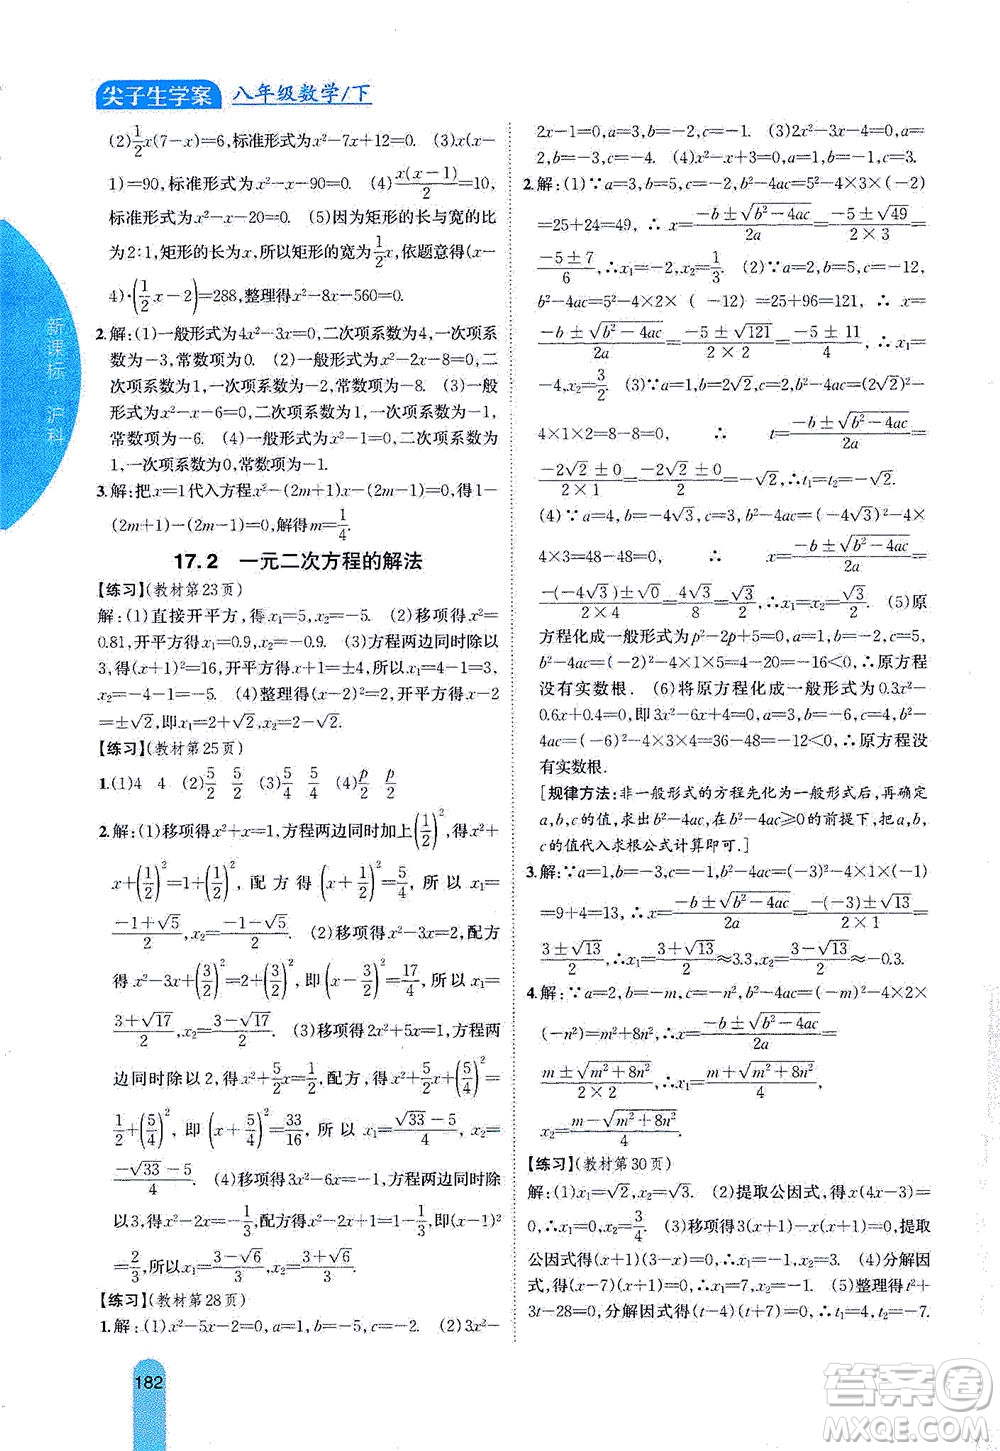 尖子生学案 八年级数学/下
新课标·沪科
(2)\frac{1}{2}x(7-x)=6,标准形式为x²-7x+12=0. (3)x(x-
1)=90,标准形式为x²-x-90=0. (4)\frac{x(x-1)}{2}=10,
标准形式为x²-x-20=0. (5)因为矩形的长与宽的比
为2:1,矩形的长为x,所以矩形的宽为\frac{1}{2}x,依题意得(x-
4)·(\frac{1}{2}x-2)=288,整理得x²-8x-560=0.
2.解:(1)一般形式为4x²-3x=0,二次项系数为4,一次项系
数为-3,常数项为0. (2)一般形式为x²-2x-8=0,
二次项系数为1,一次项系数为-2,常数项为-8. (3)一般
形式为x²-x-6=0,二次项系数为1,一次项系数为-1,
常数项为-6. (4)一般形式为x²-x-1=0,二次项系数为
1,一次项系数为-1,常数项为-1.
3.解:把x=1代入方程x²-(2m+1)x-(2m-1)=0,得1-
(2m+1)-(2m-1)=0,解得m=\frac{1}{4}.
17.2 一元二次方程的解法
【练习】(教材第23页)
解:(1)直接开平方,得x₁=5,x₂=-5. (2)移项得x²=
0.81,开平方得x₁=0.9,x₂=-0.9. (3)方程两边同时除以
3,得(x+1)²=16,开平方得x+1=±4,所以x₁=3,
x₂=-4-1=-5. (4)整理得(x-2)²=2,开平方得x-2
=±√2,即x₁=2+√2,x₂=2-√2.
【练习】(教材第25页)
1.(1)4 4 (2)\frac{5}{2} \frac{5}{2} (3)\frac{5}{4} \frac{5}{4} (4)\frac{p}{2} \frac{p}{2}
2.解:(1)移项得x²+x=1,方程两边同时加上(\frac{1}{2})²,得x²+
x+(\frac{1}{2})²=1+(\frac{1}{2})²,配方得(x+\frac{1}{2})²=\frac{5}{4},所以x₁=
\frac{-1+√5}{2},x₂=\frac{-1-√5}{2}. (2)移项得x²-3x=2,配方
得x²-3x+(\frac{3}{2})²=2+(\frac{3}{2})²,即(x-\frac{3}{2})²=\frac{17}{4},所以x₁=
\frac{3+√17}{2},x₂=\frac{3-√17}{2}. (3)移项得2x²+5x=1,方程两
边同时除以2,得x²+\frac{5}{2}x=\frac{1}{2},配方得x²+\frac{5}{2}x+(\frac{5}{4})²=
\frac{1}{2}+(\frac{5}{4})²,即(x+\frac{5}{4})²=\frac{33}{16},所以x₁=\frac{√33-5}{4},x₂=
\frac{-√33-5}{4}. (4)移项得3x²-6x=-1,方程两边同时除
以3,得x²-2x=-\frac{1}{3},配方得x²-2x+1=-\frac{1}{3}+1,即(x-1)²=
\frac{2}{3},所以x₁=\frac{3+√6}{3},x₂=\frac{3-√6}{3}.
【练习】(教材第28页)
1.解:(1)x²-5x-2=0,a=1,b=-5,c=-2. (2)3x²-
2x-1=0,a=3,b=-2,c=-1. (3)2x²-3x=0,a=
2,b=-3,c=0. (4)x²-x+3=0,a=1,b=-1,c=3.
2.解:(1)∵a=3,b=5,c=-2,b²-4ac=5²-4×3×(-2)
=25+24=49,∴x=\frac{-b±√(b²-4ac)}{2a}=\frac{-5±√49}{2×3}=
\frac{-5±7}{6},∴x₁=-2,x₂=\frac{1}{3}. (2)∵a=2,b=5,c=-12,
b²-4ac=5²-4×2×(-12)=25+96=121,∴x=
\frac{-b±√(b²-4ac)}{2a}=\frac{-5±√121}{2×2}=\frac{-5±11}{4},∴x₁=
-4,x₂=\frac{3}{2}. (3)∵a=1,b=2√2,c=2,b²-4ac=(2√2)²-
4×1×2=8-8=0,∴t=\frac{-b±√(b²-4ac)}{2a}=
\frac{-2√2±0}{2×1}=-√2,∴t₁=-√2,t₂=-√2.
(4)∵a=2,b=-4√3,c=6,b²-4ac=(-4√3)²-4×
2×6=48-48=0,∴x=\frac{-b±√(b²-4ac)}{2a}=
\frac{-(-4√3)±0}{2×4}=\frac{4√3}{8}=\frac{√3}{2},∴x₁=x₂=\frac{√3}{2}. (5)原
方程化成一般形式为p²-2p+5=0,∵a=1,b=-2,c=
5,b²-4ac=(-2)²-4×1×5=4-20=-16<0,∴原方程
没有实数根. (6)将原方程化成一般形式为0.3x²-
0.6x+0.4=0,即3x²-6x+4=0,∵a=3,b=-6,c=4,b²-
4ac=(-6)²-4×3×4=36-48=-12<0,∴原方程没
有实数根.
[规律方法:非一般形式的方程先化为一般形式后,再确定
a,b,c的值,求出b²-4ac,在b²-4ac≥0的前提下,把a,b,
c的值代入求根公式计算即可.]
3.解:∵a=1,b=-3,c=-1,b²-4ac=(-3)²-4×1×(-1)
=9+4=13,∴x=\frac{-b±√(b²-4ac)}{2a}=\frac{-(-3)±√13}{2×1}=
\frac{3±√13}{2},∴x₁=\frac{3+√13}{2}≈3.3,x₂=\frac{3-√13}{2}≈-0.3.
4.解:∵a=2,b=-m,c=-n²,b²-4ac=(-m)²-4×2×
(-n²)=m²+8n²,∴x=\frac{-b±√(b²-4ac)}{2a}=
\frac{m±√(m²+8n²)}{2×2},∴x₁=\frac{m+√(m²+8n²)}{4},
x₂=\frac{m-√(m²+8n²)}{4}.
【练习】(教材第30页)
解:(1)x₁=√2,x₂=√3. (2)提取公因式,得x(4x-3)=
0,∴x₁=0,x₂=\frac{3}{4}. (3)移项得3(x+1)-x(x+1)=0,提取
公因式得(x+1)(3-x)=0,∴x₁=-1,x₂=3. (4)分解因
式,得(x-7)(x+1)=0,∴x₁=7,x₂=-1. (5)整理得t²+
3t-28=0,分解因式得(t-4)(t+7)=0,∴t₁=4,t₂=-7.
182
答案圈
MXQE.COM